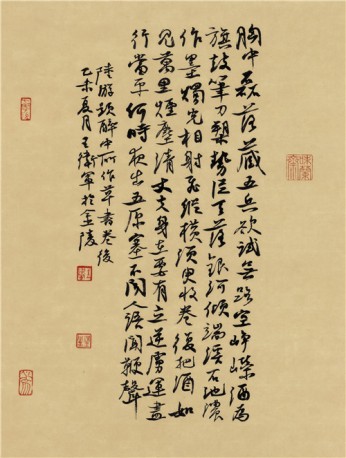 胸中磊落藏五兵欲試無路空崢嶸酒為
旗鼓筆刀槊勢從天落銀河傾端溪石池濃
作墨燭光相射飛縱橫須臾收卷復把酒如
見萬里煙塵清丈夫身在要有立逆虜運盡
行當平何時夜出五原塞不聞人語聞鞭聲
陸游題醉中所作草書卷後
乙未夏月王衛軍於金陵